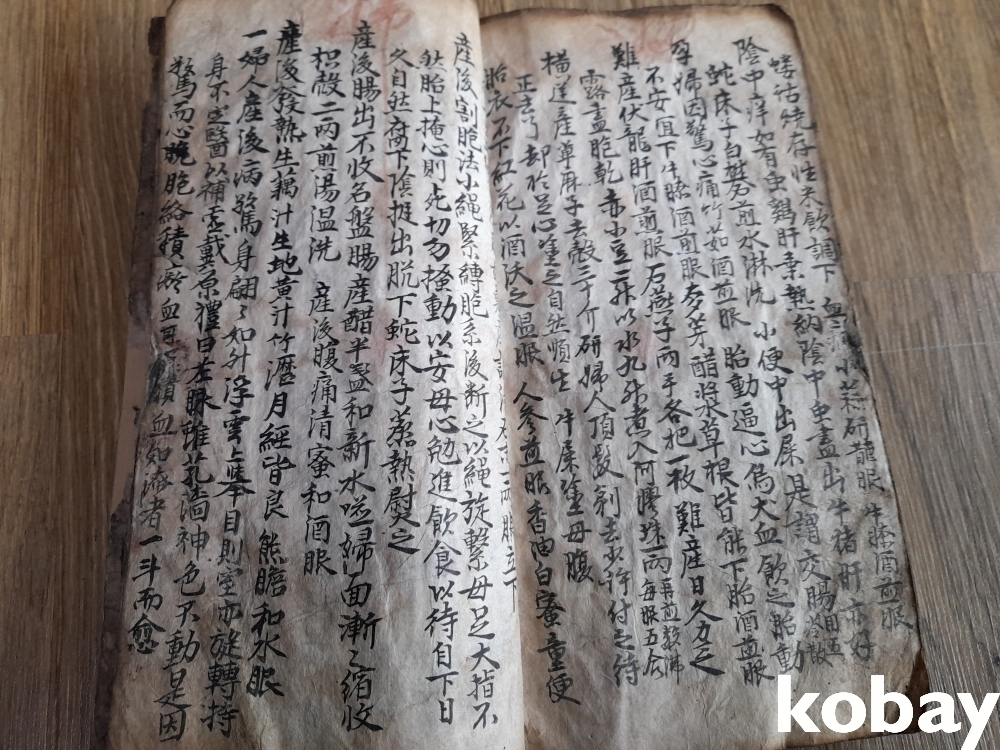 螻蛄燒存性米飮調下 血 小 研 服 牛膝酒煎服
陰中痒如有虫鷄肝乘熱納陰中虫盡出牛猪肝亦好
蛇床子白礬煎水淋洗 小便中出屎是謂交腸用五苓散
孕婦因驚心痛竹茹酒煎服 胎動逼心烏犬血飮之胎動
不安宜下牛膝酒煎服 麥芽醋漿草根皆能下胎酒煎服
難産伏龍肝酒煎服 石燕子兩手各把一枚 難産日久力乏
露盡胞乾 赤小豆二升以水九升煮入阿膠珠一兩再煎數沸每服五合
橫逆産萆麻子去殼三十介研婦人頂髮剃去少許付之待
正去了却於足心塗之自然順生 牛屎塗母腹
胎衣不下紅花以酒沃之溫服 人參煎服香油白蜜重便
服立下
産後割胞法小繩緊縛胞系後断之以繩旋繫母足大指不
然胎上掩心則死切勿搔動以安母心勉進飮食以待自下日
久自然腐下陰挺出脫下蛇床子蒸熱慰之
産後腸出不收名盤腸産醋半盞和新水噀婦面漸々縮收
枳殼二兩煎湯溫洗 産後腹痛淸蜜和酒服
産後發熱生藕汁生地黃汁竹瀝月經皆良 熊膽和水服
一婦人産後病驚身翩々如升浮雲上擧目則室亦旋轉持
身不定醫以補虛戴原禮曰左脉雖芤濇神色不動是因
驚而心 胞絡積瘀血 血如漆者一斗而愈
kobay